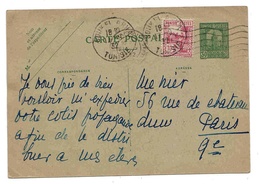 CARTE POSTALE
TUNISIE
Je vous prie de bien
vouloir m'expédier
votre colis propagande
afin de le distri
buer à mes élèves
56 rue de chateau
dun
Paris
9e